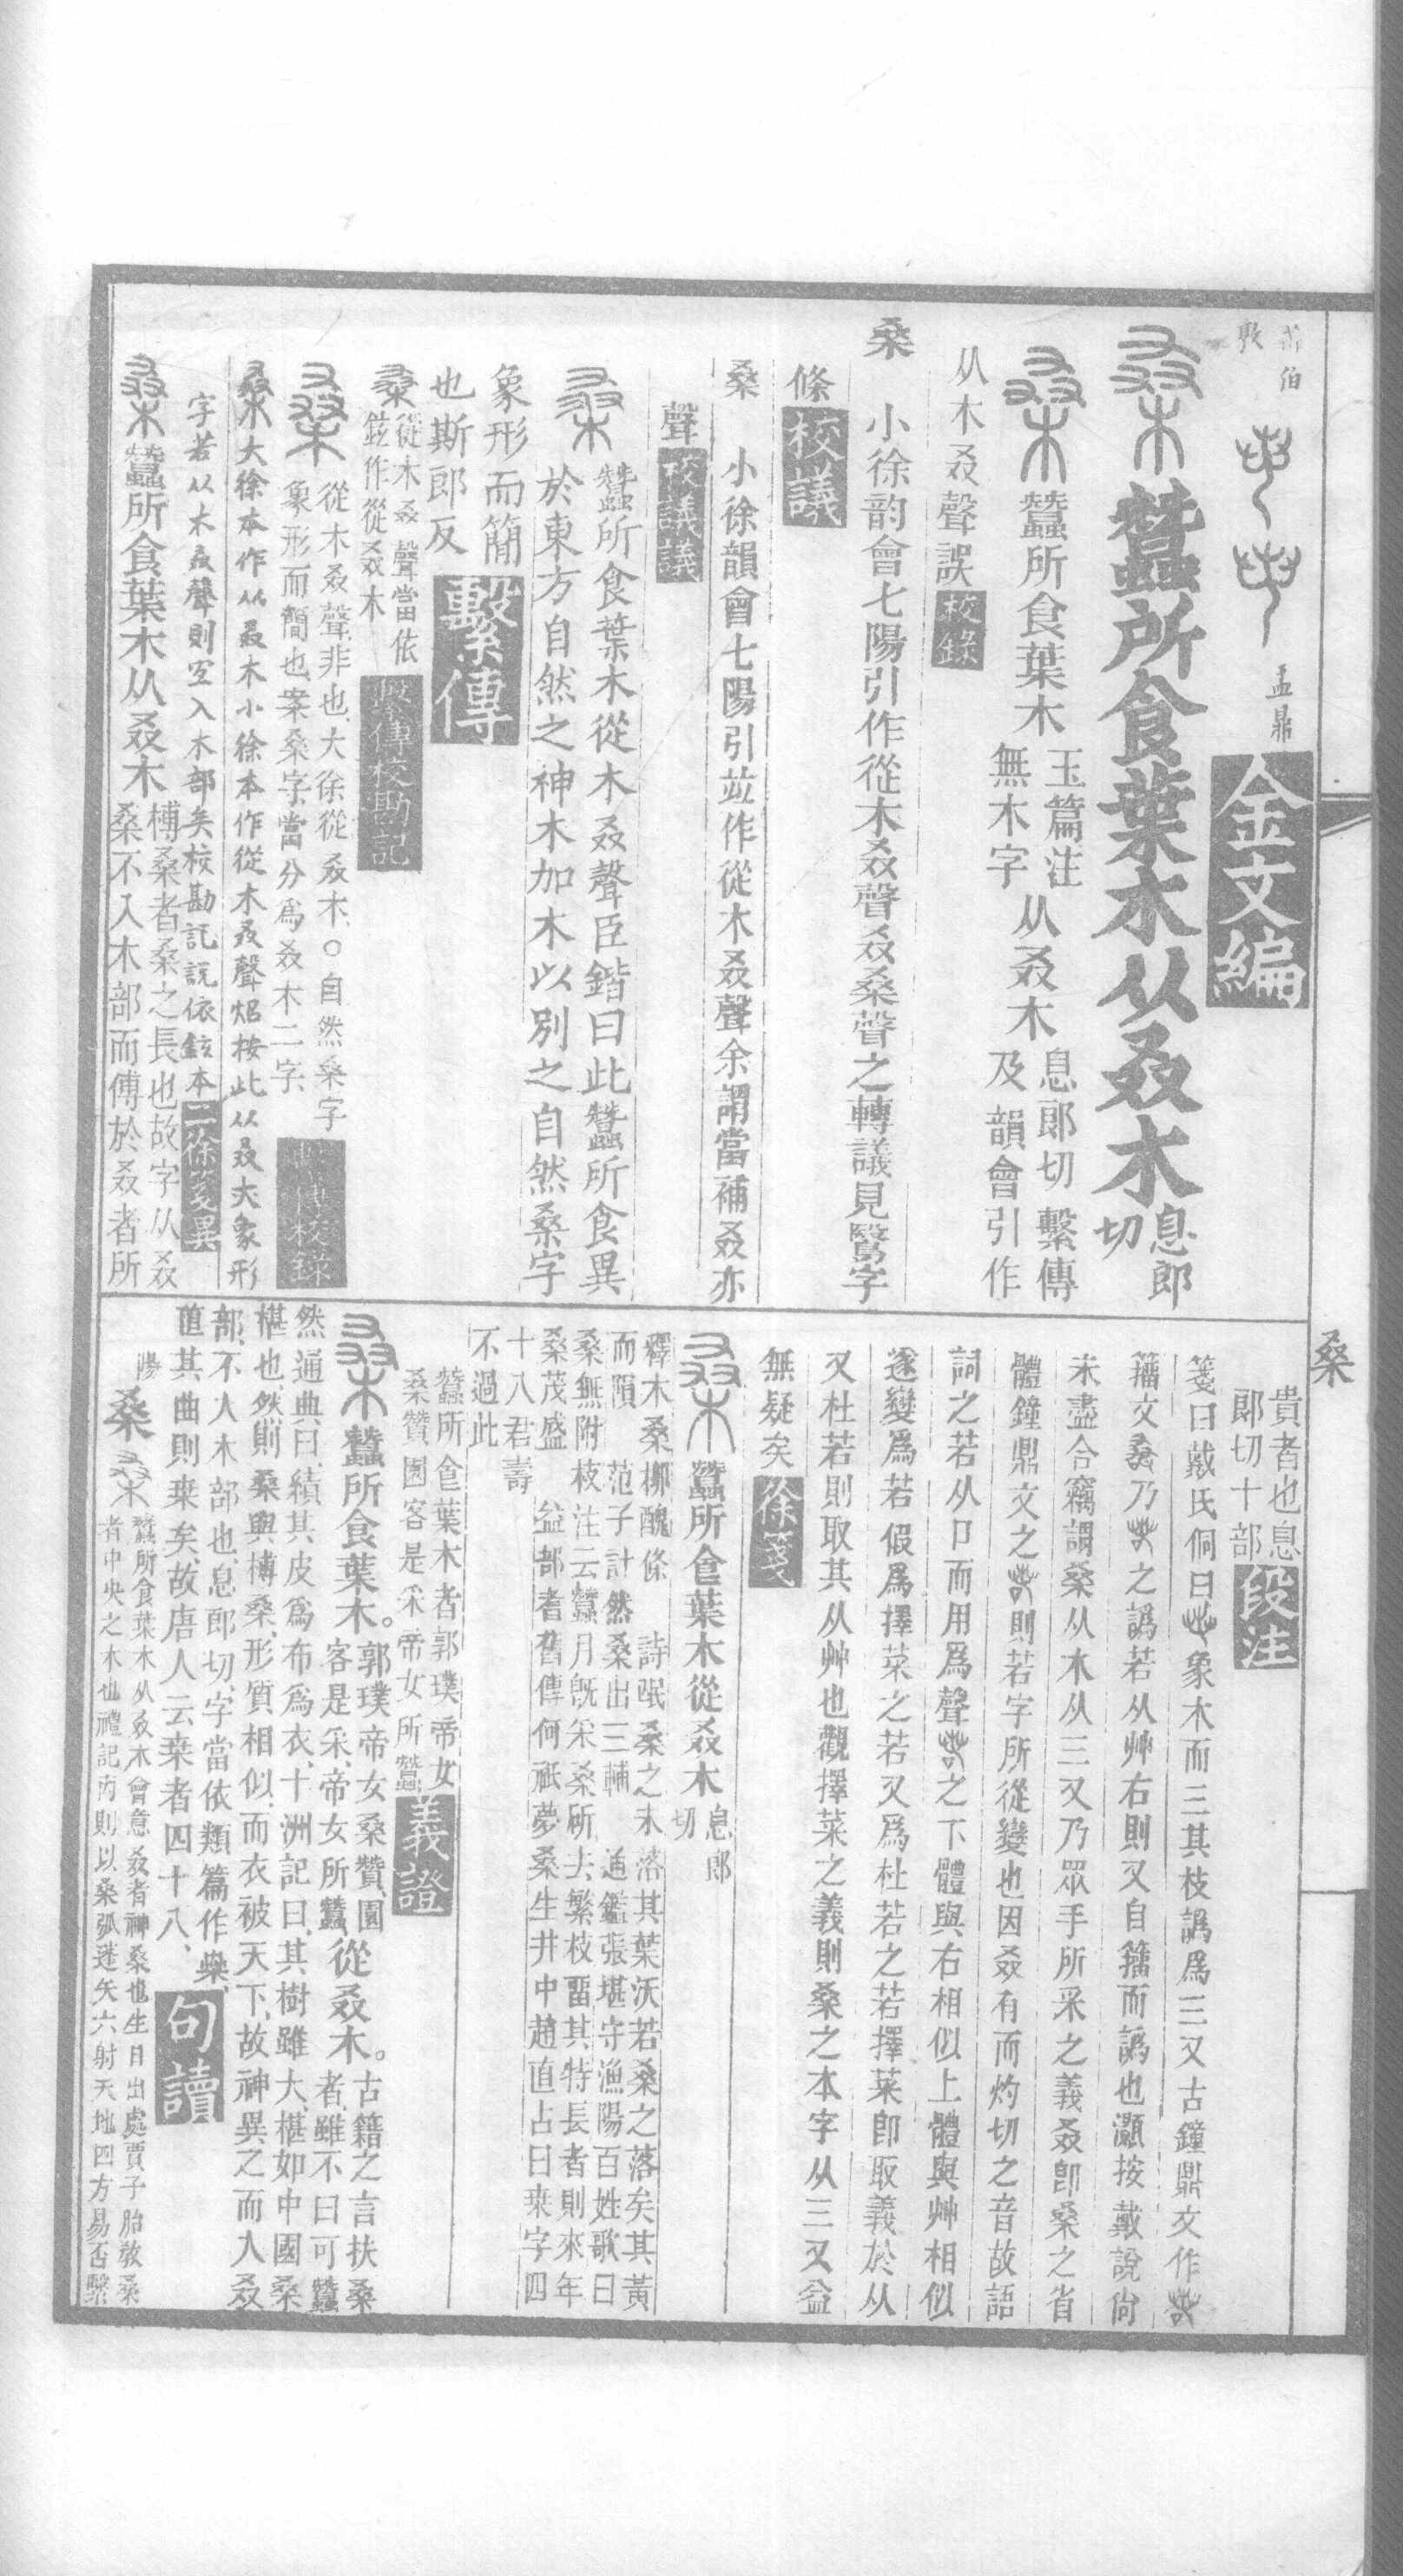 敦
伯
盂鼎
金文編
蠶所食葉木从叒木
息郎
切
蠶所食葉木
玉篇注
無木字
从叒木
息郎切繫傳
及韻會引作
从木叒聲誤
校錄
桑
小徐韵會七陽引作從木叒聲叒桑聲之轉議見字
條
校議
桑
小徐韻會七陽引竝作從木叒聲余謂當補叒亦
聲
校議議
蠶所食葉木從木叒聲臣鍇曰此蠶所食異
於東方自然之神木加木以別之自然桑字
象形而簡
也斯郎反
繫傳
桑
從木叒聲當依
鉉作從叒木
繫傳校勘記
從木叒聲非也大徐從叒木○自然桑字
象形而簡也案桑字當分爲叒木二字
繫傳校錄
桑大徐本作从叒木小徐本作從木叒聲炤按此从叒大象形
字若从木叒聲則宜入木部矣校勘記說依鉉本
二徐箋異
蠶所食葉木从叒木
榑桑者桑之長也故字从叒
桑不入木部而傅於叒者所
桑
貴者也息
郎切十部
段注
箋曰戴氏侗曰象木而三其枝譌爲三又古鐘鼎文作
籒文乃之譌若从艸右則又自籒而譌也灝按戴說尙
未盡合竊謂桑从木从三又乃眾手所采之義叒卽桑之省
體鐘鼎文之則若字所從變也因叒有而灼切之音故語
詞之若从口而用爲聲之下體與右相似上體與艸相似
遂變爲若假爲擇菜之若又爲杜若之若擇菜卽取義於从
又杜若則取其从艸也觀擇菜之義則桑之本字从三又益
無疑矣
徐箋
蠶所食葉木從叒木
息郎
切
釋木桑柳醜條
詩氓桑之未落其葉沃若桑之落矣其黃
而隕
范子計然桑出三輔
通鑑張堪守漁陽百姓歌曰
桑無附枝注云蠶月旣采桑斫去繁枝畱其特長者則來年
桑茂盛
益部耆舊傳何祇夢桑生井中趙直占曰桒字四
十八君壽
不過此
蠶所食葉木者郭璞帝女
桑贊園客是采帝女所蠶
義證
蠶所食葉木。
郭璞帝女桑贊園
客是采、帝女所蠶、
從叒木。
古籍之言扶桑
者、雖不曰可蠶、
然通典曰、績其皮爲布爲衣、十洲記曰、其樹雖大、椹如中國桑
椹也、然則桑與榑桑、形質相似、而衣被天下、故神異之而入叒
部、不入木部也、息郎切、字當依類篇作桒、
直其曲則桒矣、故唐人云桒者四十八、
句讀
陽
桑
蠶所食葉木从叒木會意叒者神桑也生日出處賈子胎敎桑
者中央之木也禮記內則以桑弧蓬矢六射天地四方易否繫